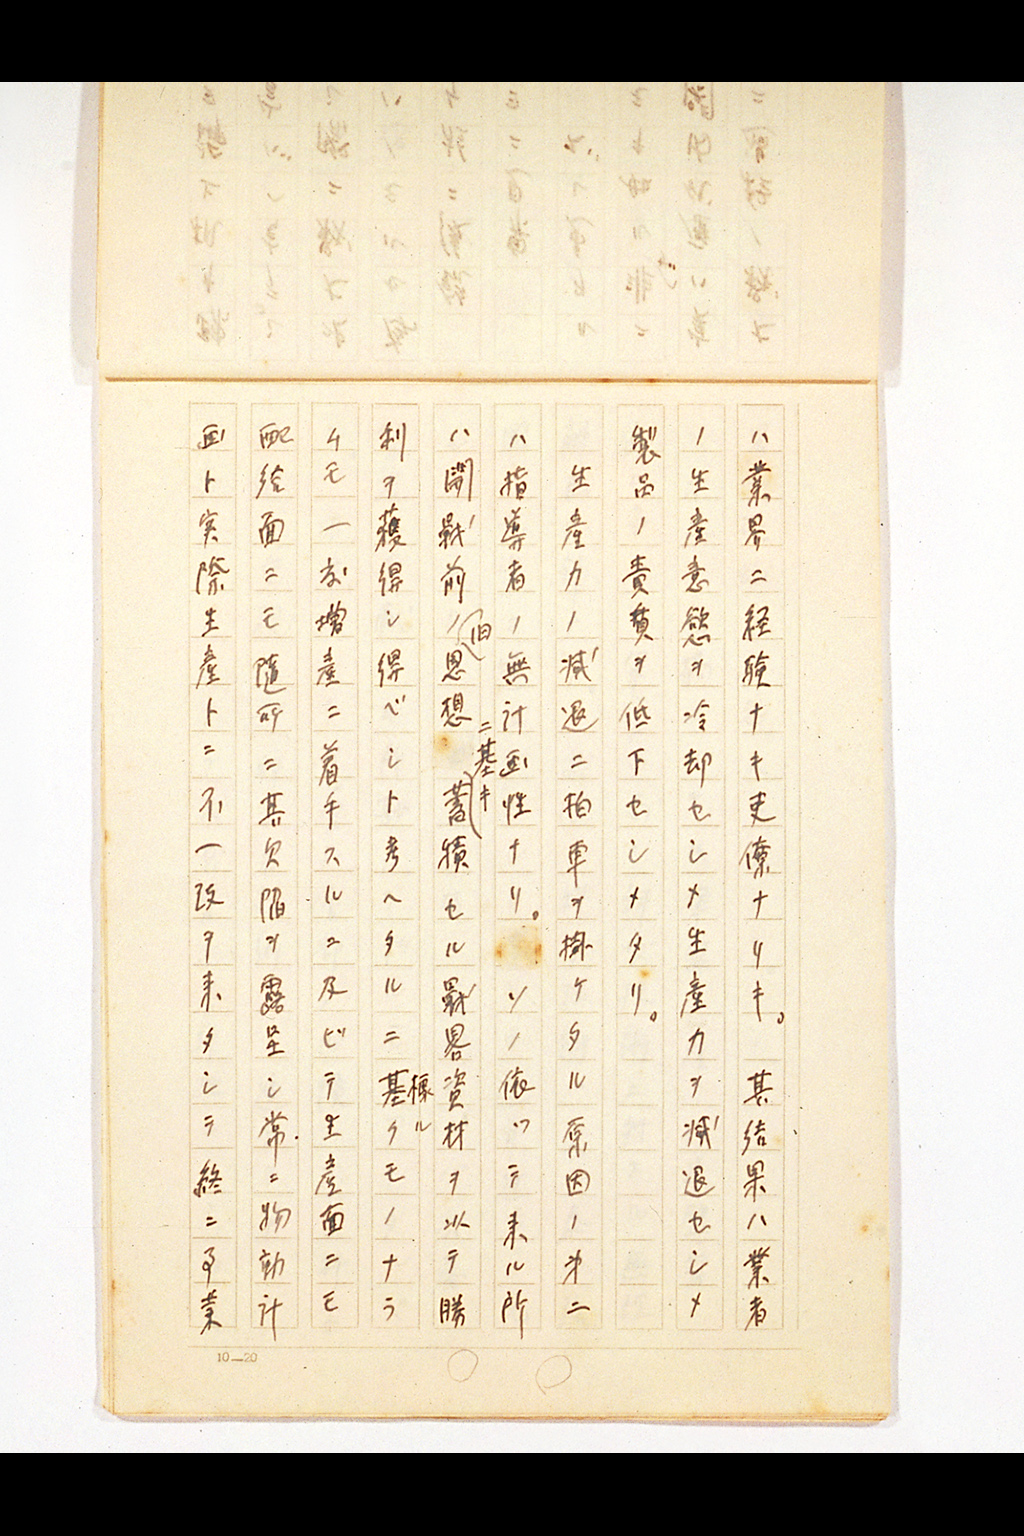 ハ業界ニ経験ナキ吏僚ナリキ。 其結果ハ業者
ノ生産意慾ヲ冷却セシメ生産力ヲ減退セシメ
製品ノ貴質ヲ低下セシメタリ。
生産力ノ減退ニ拍車ヲ掛ケタル原因ノ第二
ハ指導者ノ無計画性ナリ。 ソノ依ッテ来ル所
ハ開戦前ノ旧思想ニ基キ蓄積セル戦畧資材ヲ以テ勝
利ヲ獲得シ得ベシト考ヘタルニ基クモノナラ
ムモ一度増産ニ着手スルニ及ビテ生産面ニモ
配給面ニモ随所ニ其欠陥ヲ露呈シ常ニ物動計
画ト実際生産トニ不一致ヲ来タシテ終ニ事業
10—20